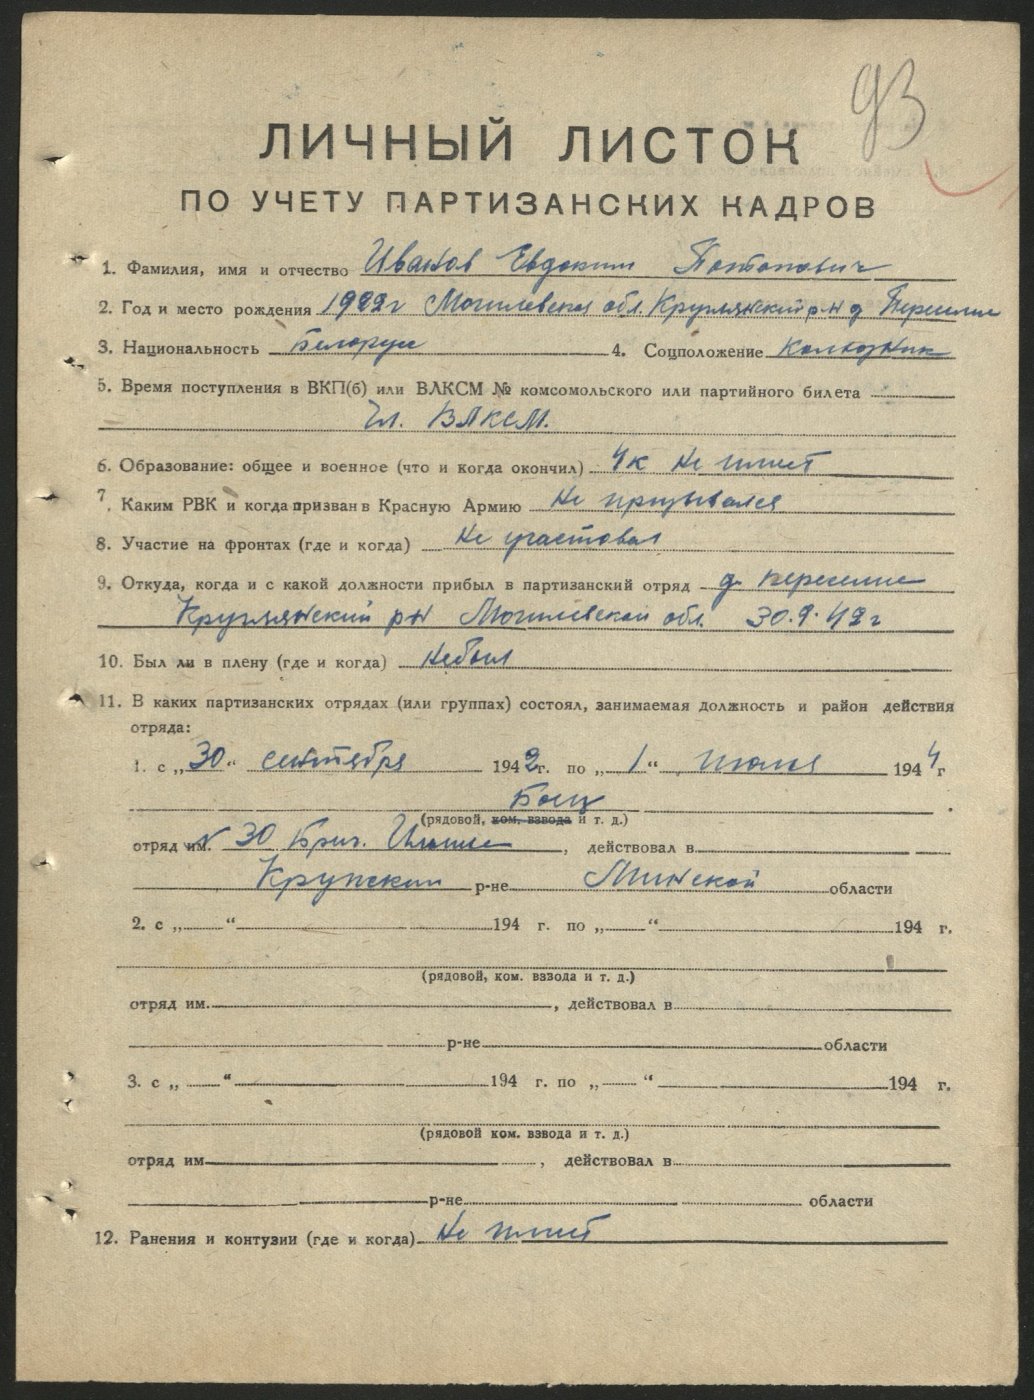 93
ЛИЧНЫЙ ЛИСТОК
ПО УЧЕТУ ПАРТИЗАНСКИХ КАДРОВ
1. Фамилия, имя и отчество Иванов Евдоким Потапович
2. Год и место рождения 1922г Могилевская обл. Круглянский р-н д
3. Национальность Белорус 4. Соцположение Колхозник
5. Время поступления в ВКП(б) или ВЛКСМ № комсомольского или партийного билета
Чл. ВЛКСМ.
6. Образование: общее и военное (что и когда окончил) 4к Не имеет
7. Каким РВК и когда призван в Красную Армию Не призывался
8. Участие на фронтах (где и когда) Не участвовал
9. Откуда, когда и с какой должности прибыл в партизанский отряд д.
Круглянский рн Могилевской обл. 30.9.42г
10. Был ли в плену (где и когда) Небыл
11. В каких партизанских отрядах (или группах) состоял, занимаемая должность и район действия
отряда:
1. с „30“ сентября 1942г. по „1“ июля 1944г
Боец
(рядовой, ком. взвода и т. д.)
отряд им. № 30 Бриг. , действовал в
Крупском р-не Минской области
2. с „ “ 194 г. по „ “ 194 г.
(рядовой, ком. взвода и т. д.)
отряд им. , действовал в
р-не области
3. с „ “ 194 г. по „ “ 194 г.
(рядовой ком. взвода и т. д.)
отряд им , действовал в
р-не области
12. Ранения и контузии (где и когда) Не имеет